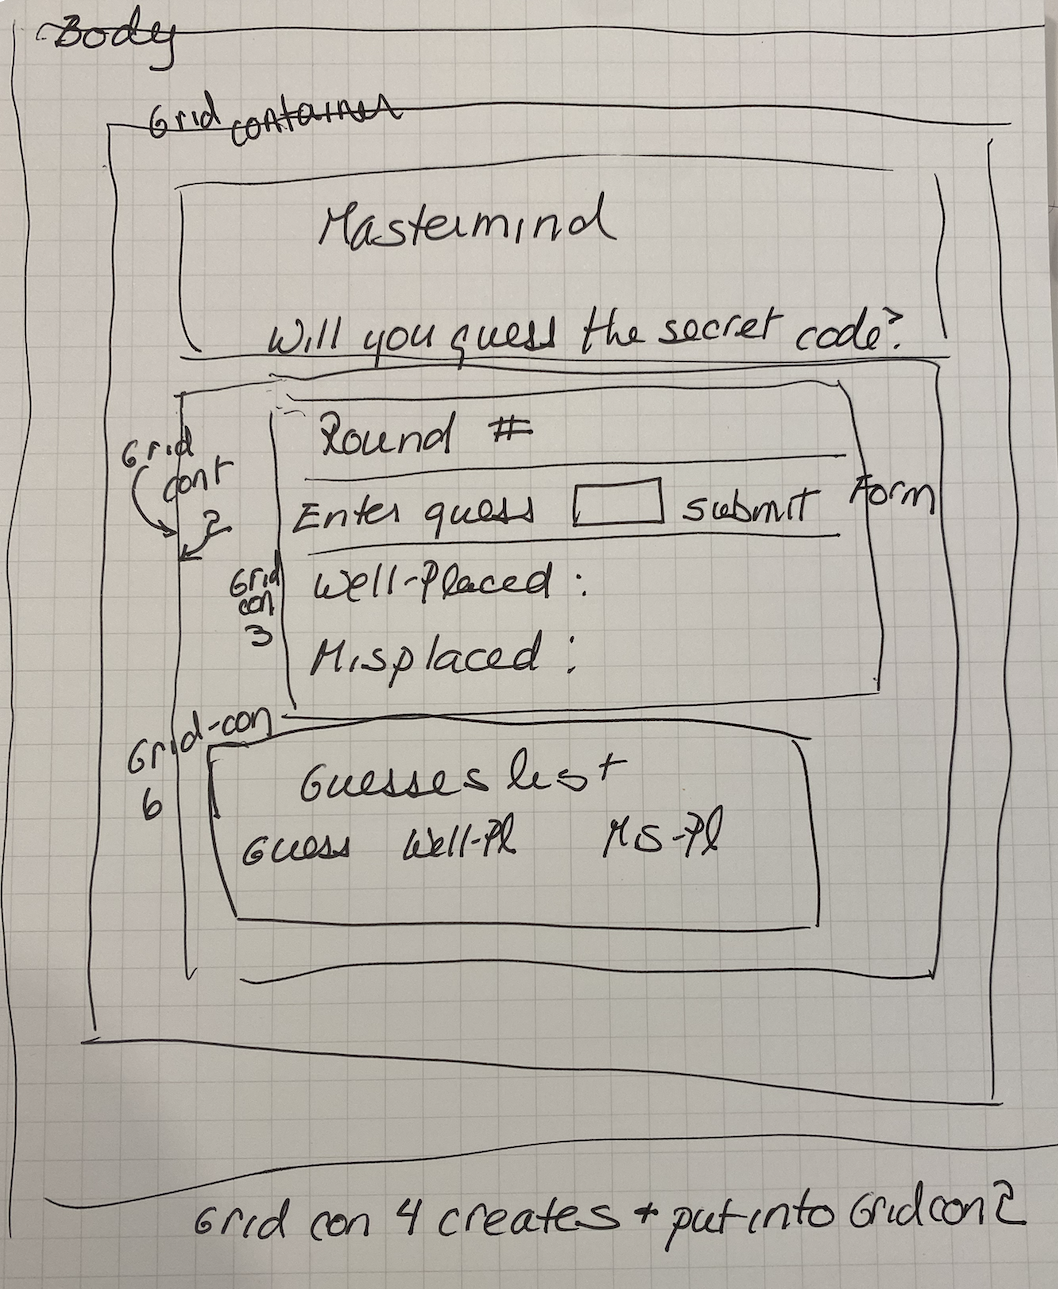 Body
Grid container
Mastermind
Will you guess the secret code?
Grid
cont
2
Round #
Enter guess submit Form
Grid
con
3
Well-Placed :
Misplaced :
Grid-con
6
Guesses list
Guess Well-Pl MS-Pl
Grid con 4 creates + put into Grid con 2